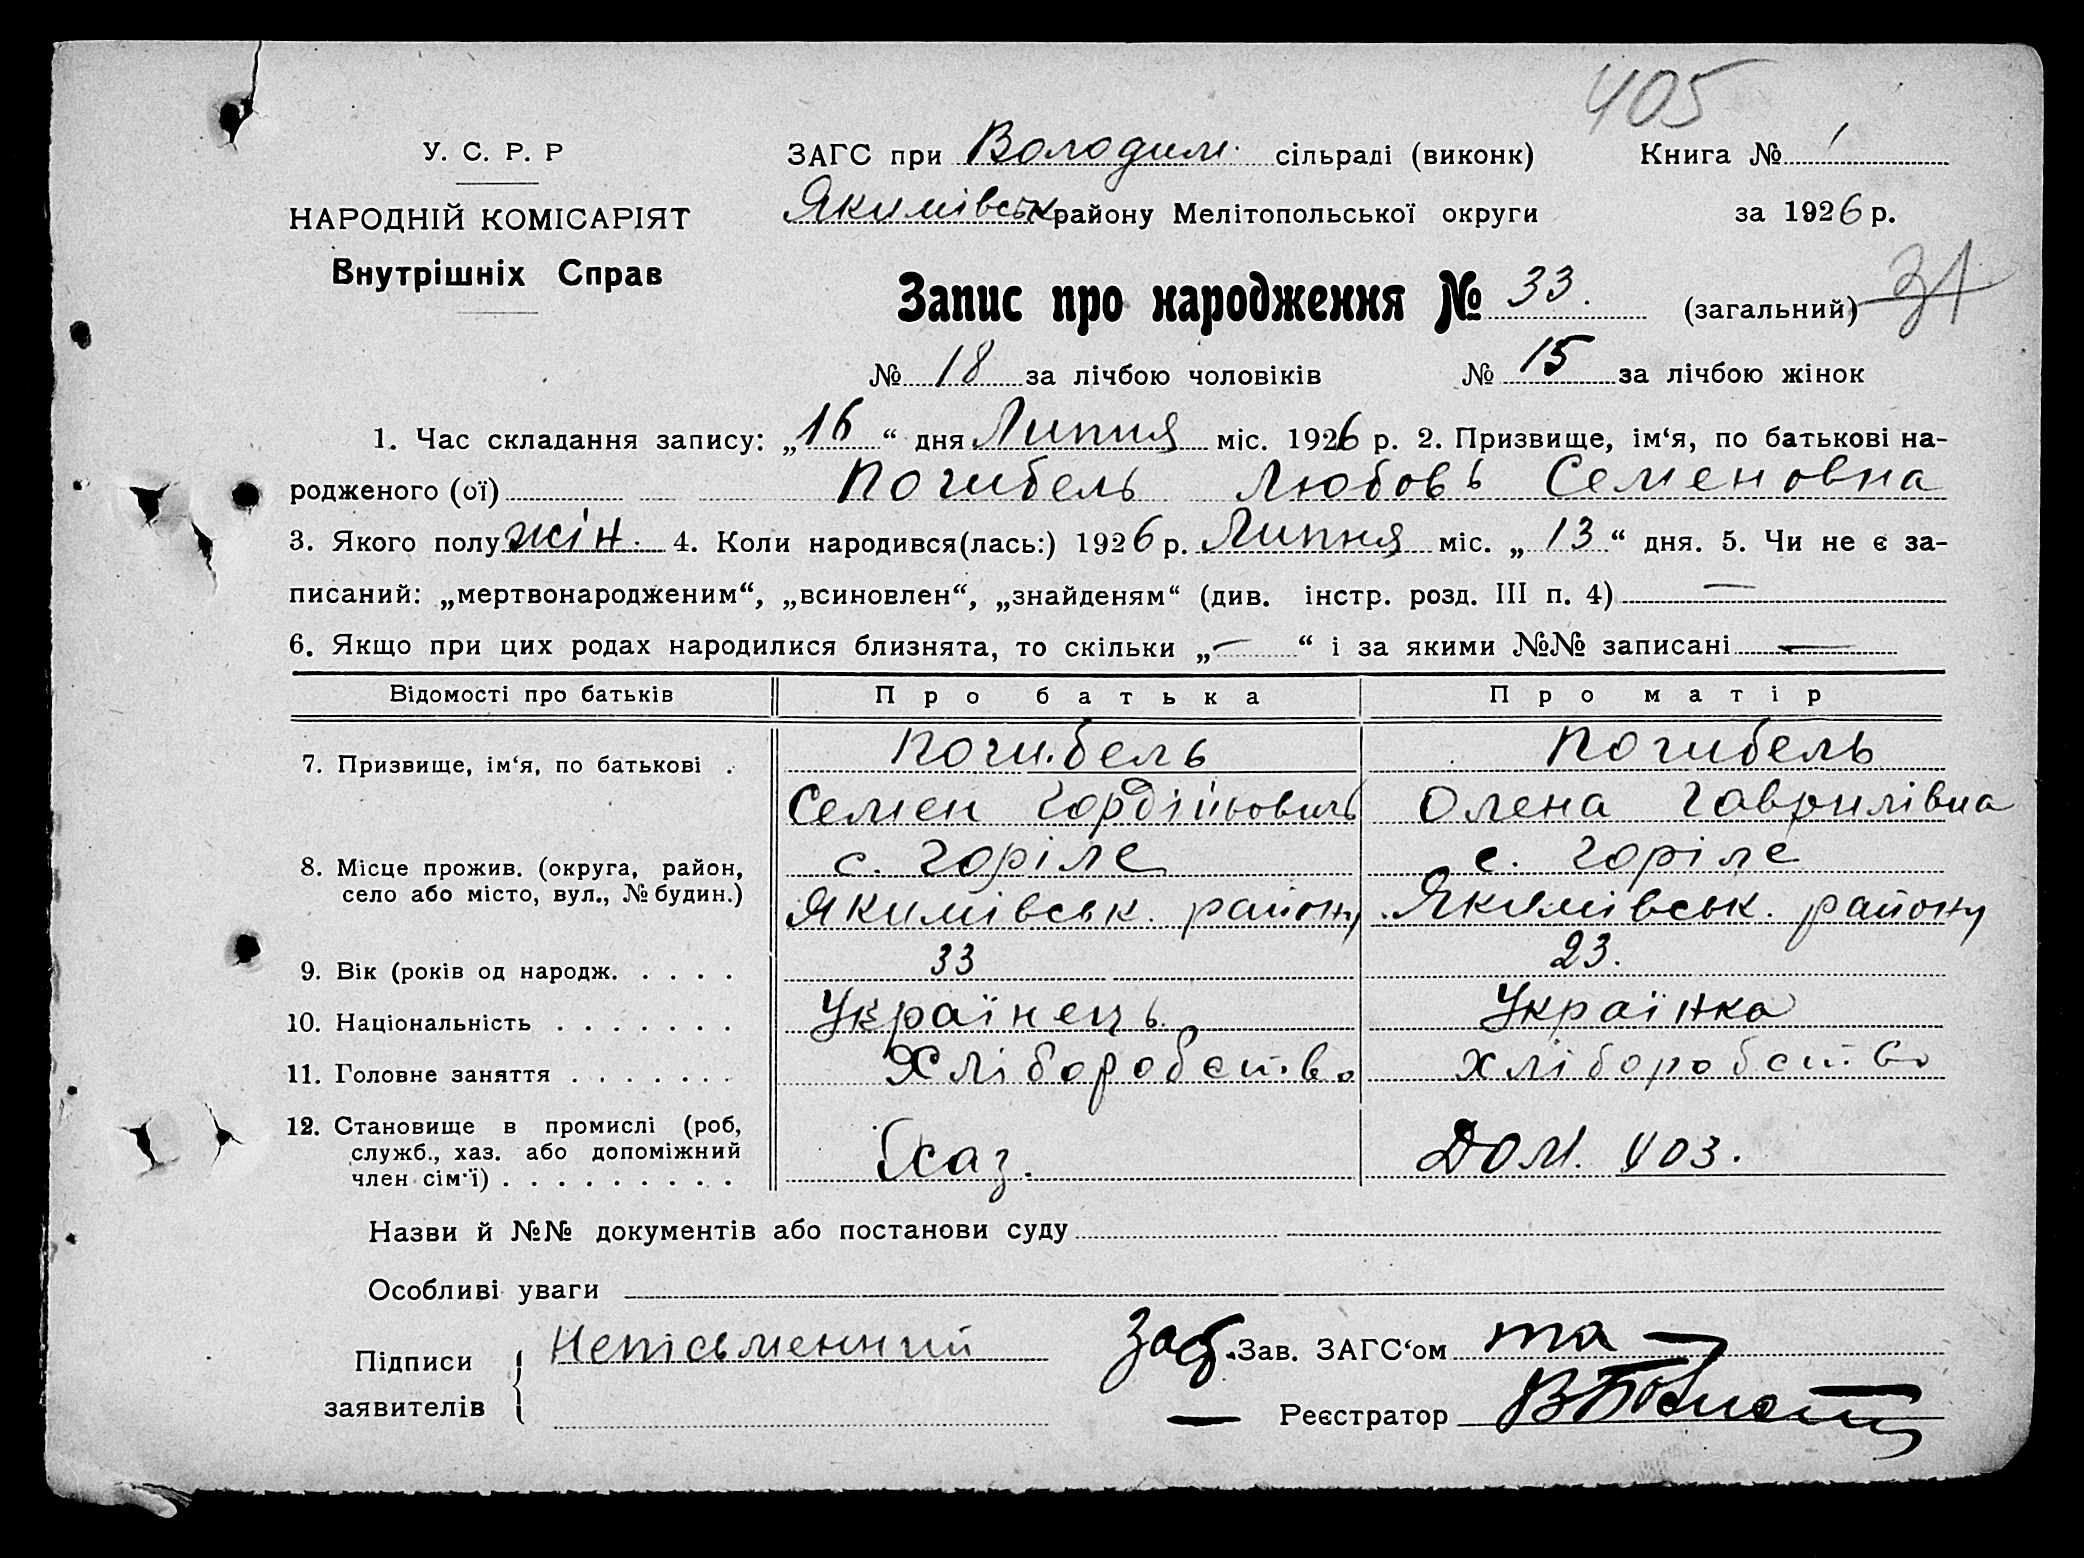 405
У. С. Р. Р
НАРОДНІЙ КОМІСАРІЯТ
Внутрішніх Справ
ЗАГС при Володим. сільраді (виконк) Книга № 1
Якимівськ району Мелітопольської округи за 1926 р.
Запис про народження № 33. (загальний) 31
№ 18 за лічбою чоловіків № 15 за лічбою жінок
1. Час складання запису: „16“ дня Липня міс. 1926 р. 2. Призвище, ім‘я, по батькові на-
родженого (ої) Погибель Любовь Семеновна
3. Якого полу жін. 4. Коли народився(лась:) 1926 р. Липня міс. „13“ дня. 5. Чи не є за-
писаний: „мертвонародженим“, „всиновлен“, „знайденям“ (див. інстр. розд. III п. 4) —
6. Якщо при цих родах народилися близнята, то скільки „—“ і за якими №№ записані —
Відомості про батьків Про батька Про матір
7. Призвище, ім‘я, по батькові . Погибель Погибель
Семен Гордійович Олена Гаврилівна
8. Місце прожив. (округа, район, с. Горіле с. Горіле
село або місто, вул., № будин.) Якимівськ. району Якимівськ. району
9. Вік (років од народж. . . . . 33 23.
10. Національність . . . . . . . Українець Українка
11. Головне заняття . . . . . . . Хліборобство Хліборобство
12. Становище в промислі (роб,
служб., хаз. або допоміжний хаз. Дом. 403.
член сім‘ї) . . . . . . . . .
Назви й №№ документів або постанови суду
Особливі уваги
Підписи Неписьменний Зав. ЗАГС‘ом та —
заявителів — Реєстратор